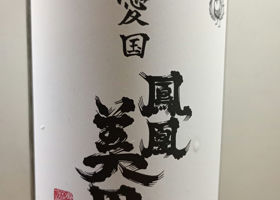 愛国
鳳凰
美田